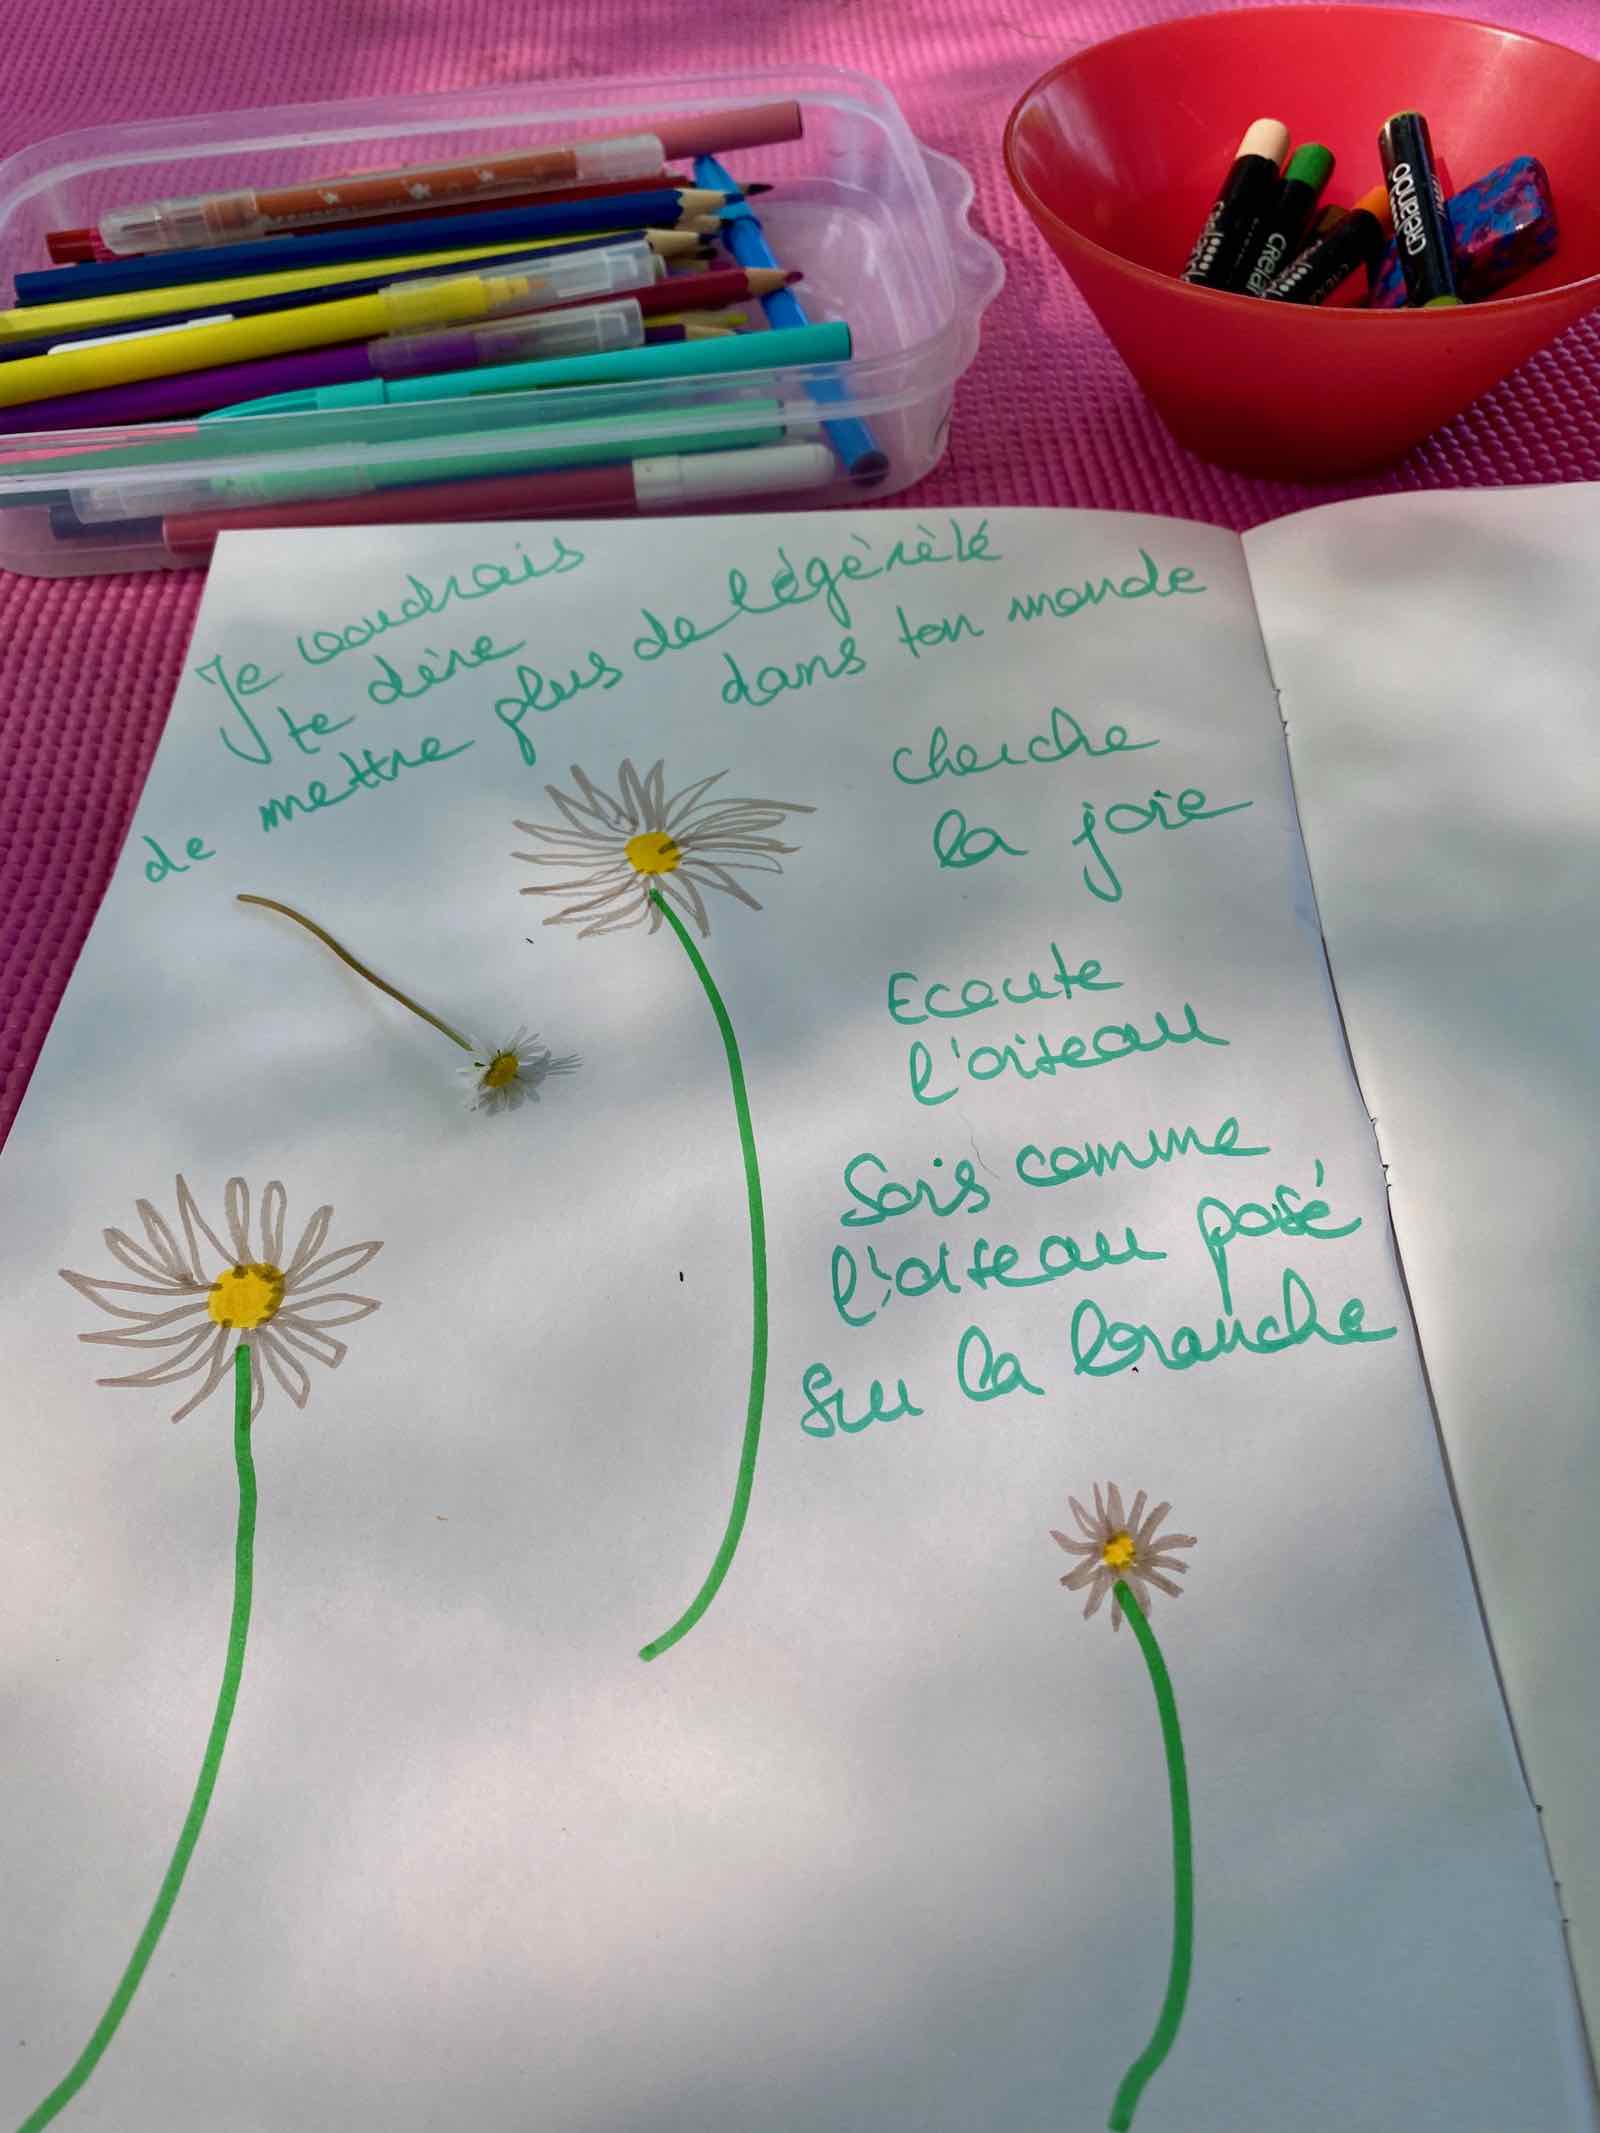 Je voudrais
te dire
de mettre plus de légèrèté
dans ton monde
cherche
la joie
Ecoute
l'oiseau
Sois comme
l'oiseau posé
sur la branche
CREandO